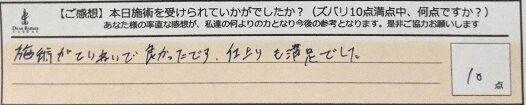 【ご感想】本日施術を受けられていかがでしたか?（ズバリ10点満点中、何点ですか?）
あなた様の率直な感想が、私達の何よりの力となり今後の参考となります。是非ご協力お願いします
施術がていねいで良かったです。仕上りも満足でした
10点